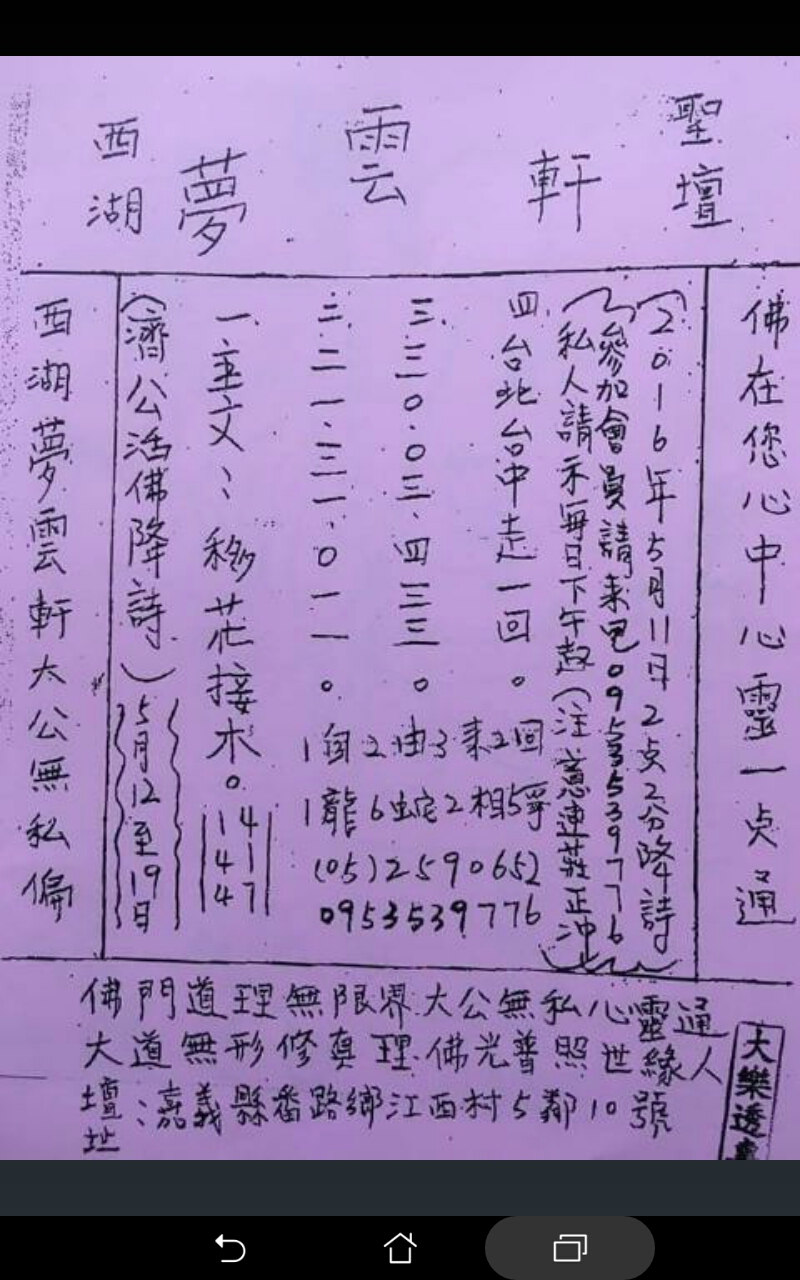 西湖夢雲軒聖壇
佛在您心中心靈一点通
(2016年5月11日2点2分降詩)
(參加會員請来电0953539776)
私人請示每日下午起(注意連莊正沖)
四、台北台中走一回。
三、三0.0三、四三三。
二、二一.三一.0一一。
一、主文:移花接木。
14
41
47
(濟公活佛降詩)
5月12至19日
1自2由3来2回
1龍6蛇2相5爭
(05)2590652
0953539776
西湖夢雲軒大公無私偏
佛門道理無限界大公無私心靈通
大道無形修真理.佛光普照世緣人
壇址:嘉義縣番路鄉江西村5鄰10號
大樂透